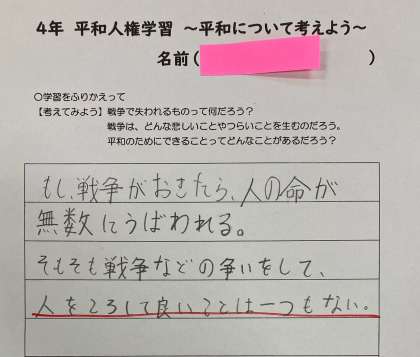 4年 平和人権学習 ～平和について考えよう～
名前( )
○学習をふりかえって
【考えてみよう】戦争で失われるものって何だろう？
戦争は、どんな悲しいことやつらいことを生むのだろう。
平和のためにできることってどんなことがあるだろう？
もし、戦争がおきたら、人の命が
無数にうばわれる。
そもそも戦争などの争いをして、
人をころして良いことは一つもない。